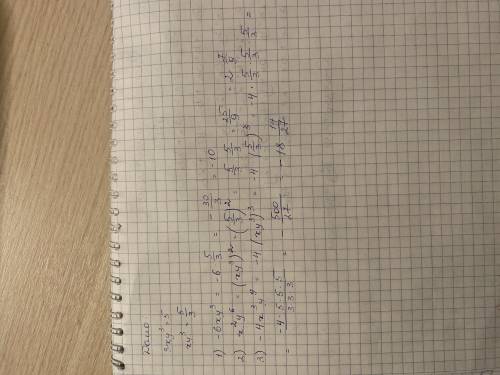 Дано
3xy³ = 5
xy³ = 5/3
1) -6xy³ = -6 5/3 = -30/3 = -10
2) x²y⁶ = (xy³)² = (5/3)² = 5/3 · 5/3 = 25/9 = 2 7/9
3) -4x³y⁹ = -4 (xy³)³ = -4 (5/3)³ = -4 · 5/3 · 5/3 · 5/3 =
= -4·5·5·5/3·3·3 = -500/27 = -18 14/27